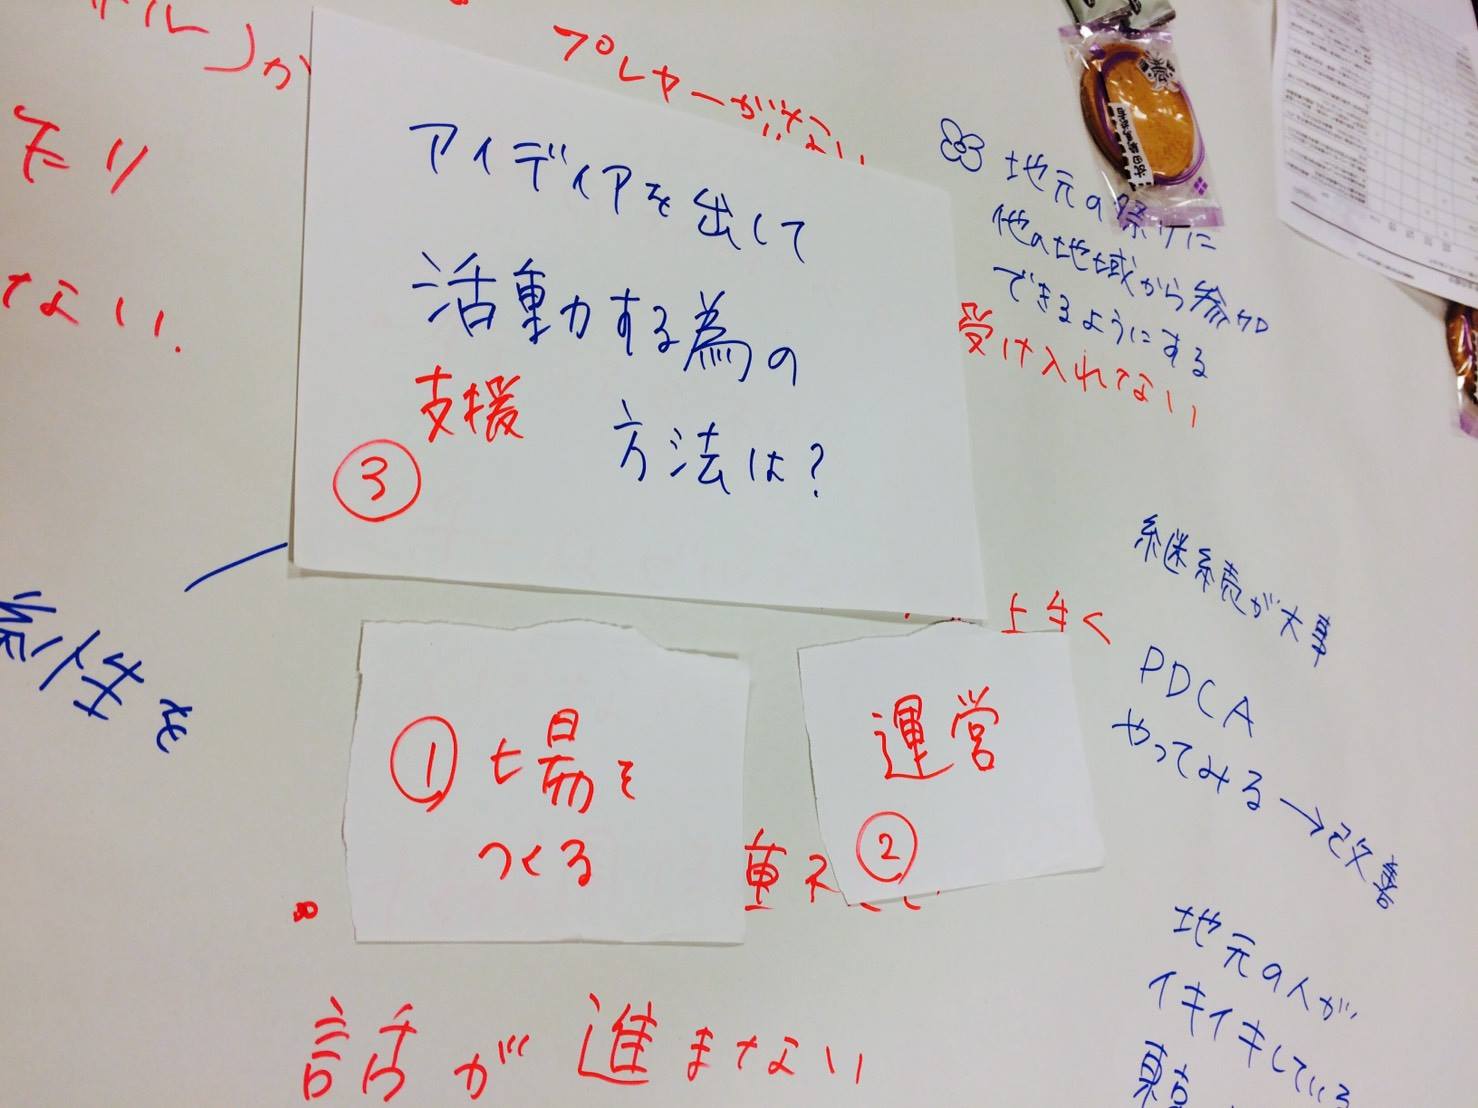 プレヤーがいない
たり
ない.
アイディアを出して
活動する為の
支援 方法は?
③
地元の祭りに
他の地域から参加
できるようにする
受け入れてない
継続が大事
PDCA
やってみる→改善
性を
上手く
① 場を
つくる
運営
②
重ね
話が進まない
地元の人が
イキイキしている